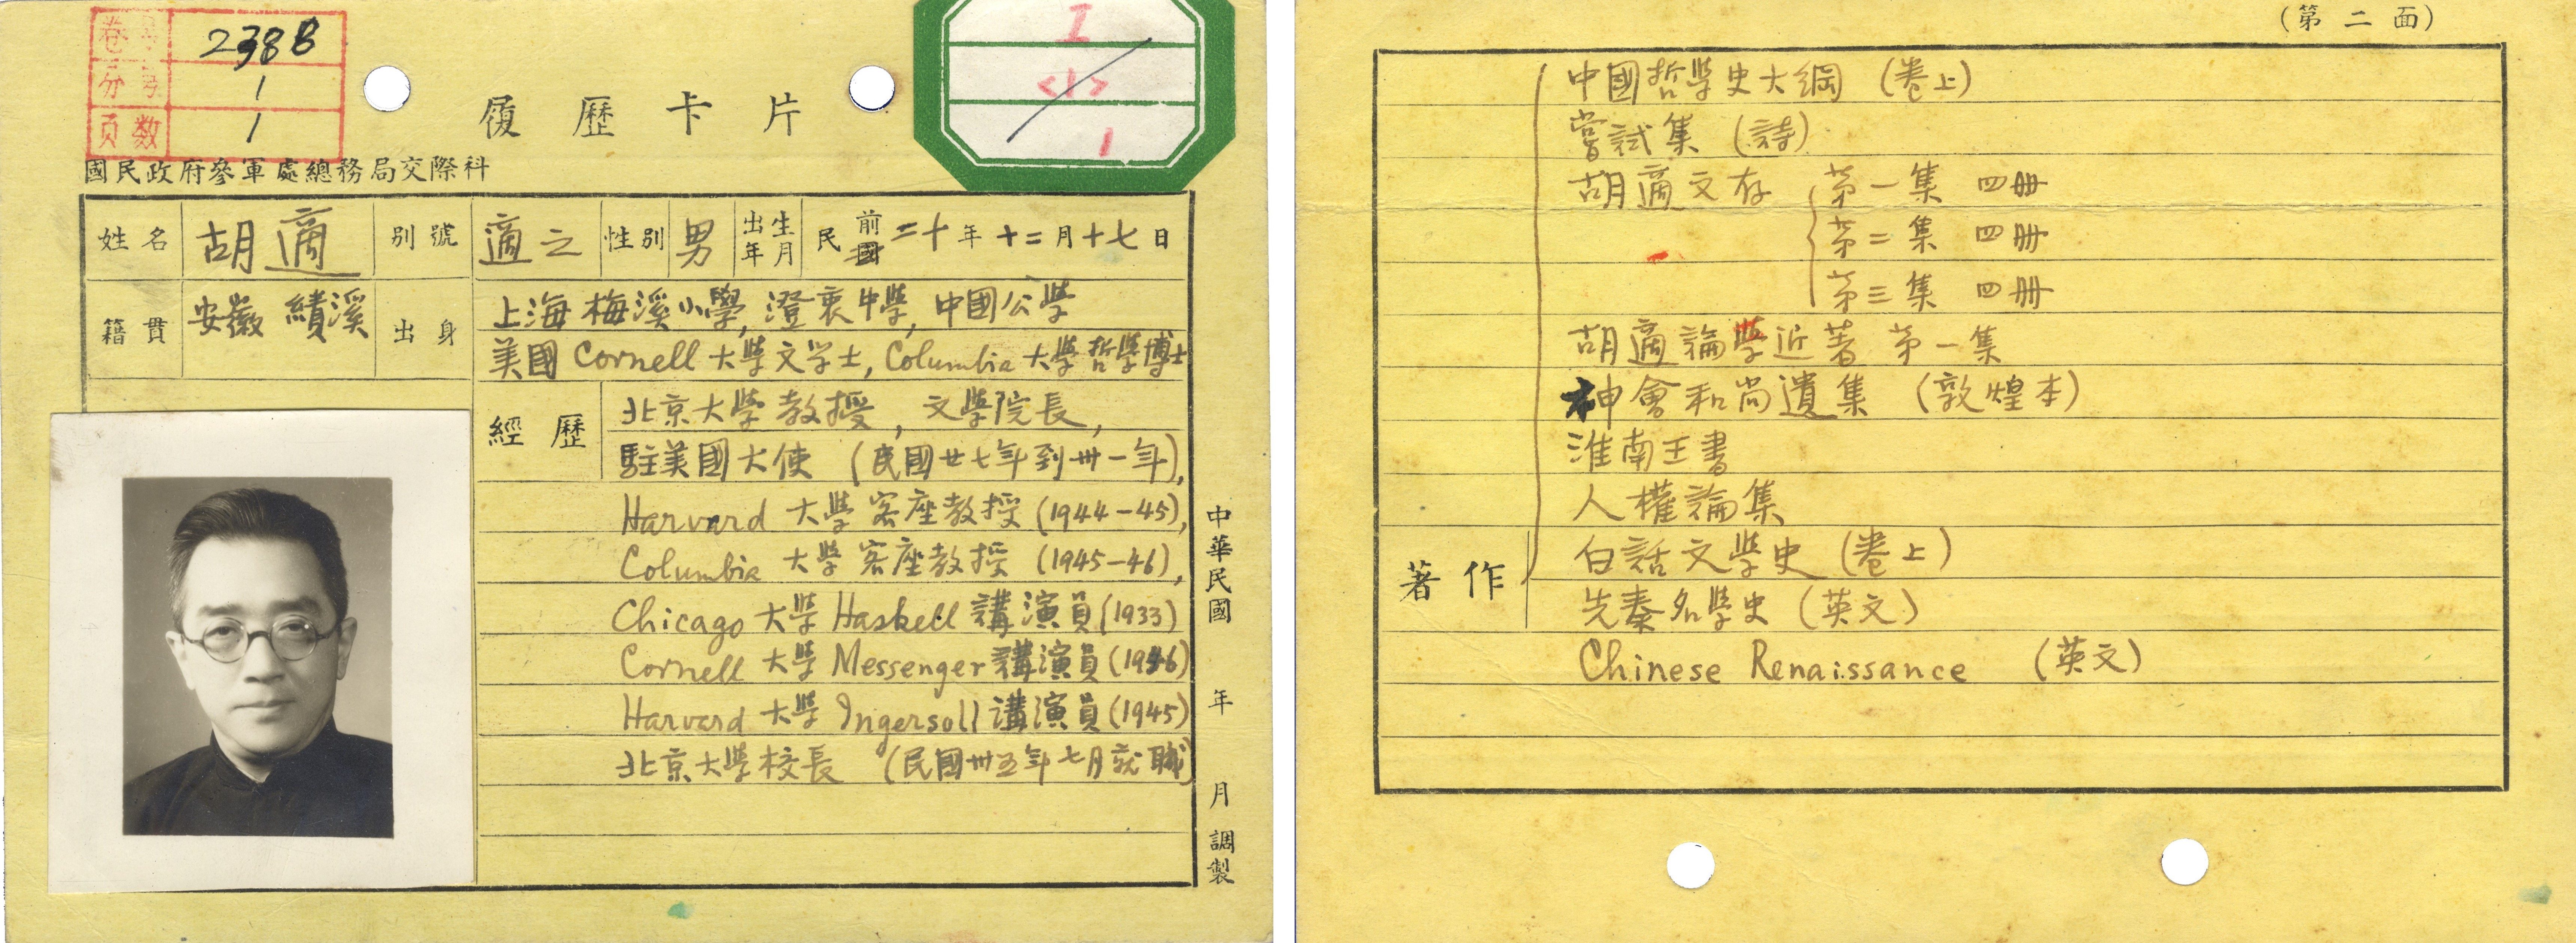 卷號 238B
分號 1
頁數 1
I
<1>
1
履歷卡片
國民政府參軍處總務局交際科
姓名 胡適 別號 適之 性別 男 出生年月 民前二十年十二月十七日
籍貫 安徽 績溪 出身 上海梅溪小學, 澄衷中學, 中國公學
美國 Cornell 大學文学士, Columbia 大學哲學博士
經歷 北京大學教授, 文學院長,
駐美國大使 (民國廿七年到卅一年),
Harvard 大學客座教授 (1944-45),
Columbia 大學客座教授 (1945-46),
Chicago 大學 Haskell 講演員 (1933)
Cornell 大學 Messenger 講演員 (1946)
Harvard 大學 Ingersoll 講演員 (1945)
北京大學校長 (民國卅五年七月就職)
中華民國 年 月 調製
(第二面)
著作
中國哲學史大綱 (卷上)
嘗試集 (詩)
胡適文存 第一集 四冊
第二集 四冊
第三集 四冊
胡適論學近著 第一集
神會和尚遺集 (敦煌本)
淮南王書
人權論集
白話文學史 (卷上)
先秦名學史 (英文)
Chinese Renaissance (英文)